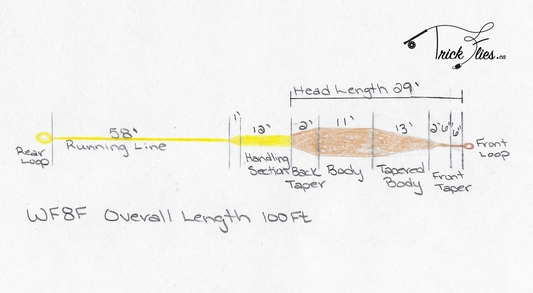 Trick Flies.ca
Head Length 29'
58' 1' 12' 2' 11' 13' 2'6" 6"
Rear Loop
Running Line
Handling Section
Back Taper
Body
Tapered Body
Front Taper
Front Loop
WF8F Overall Length 100Ft